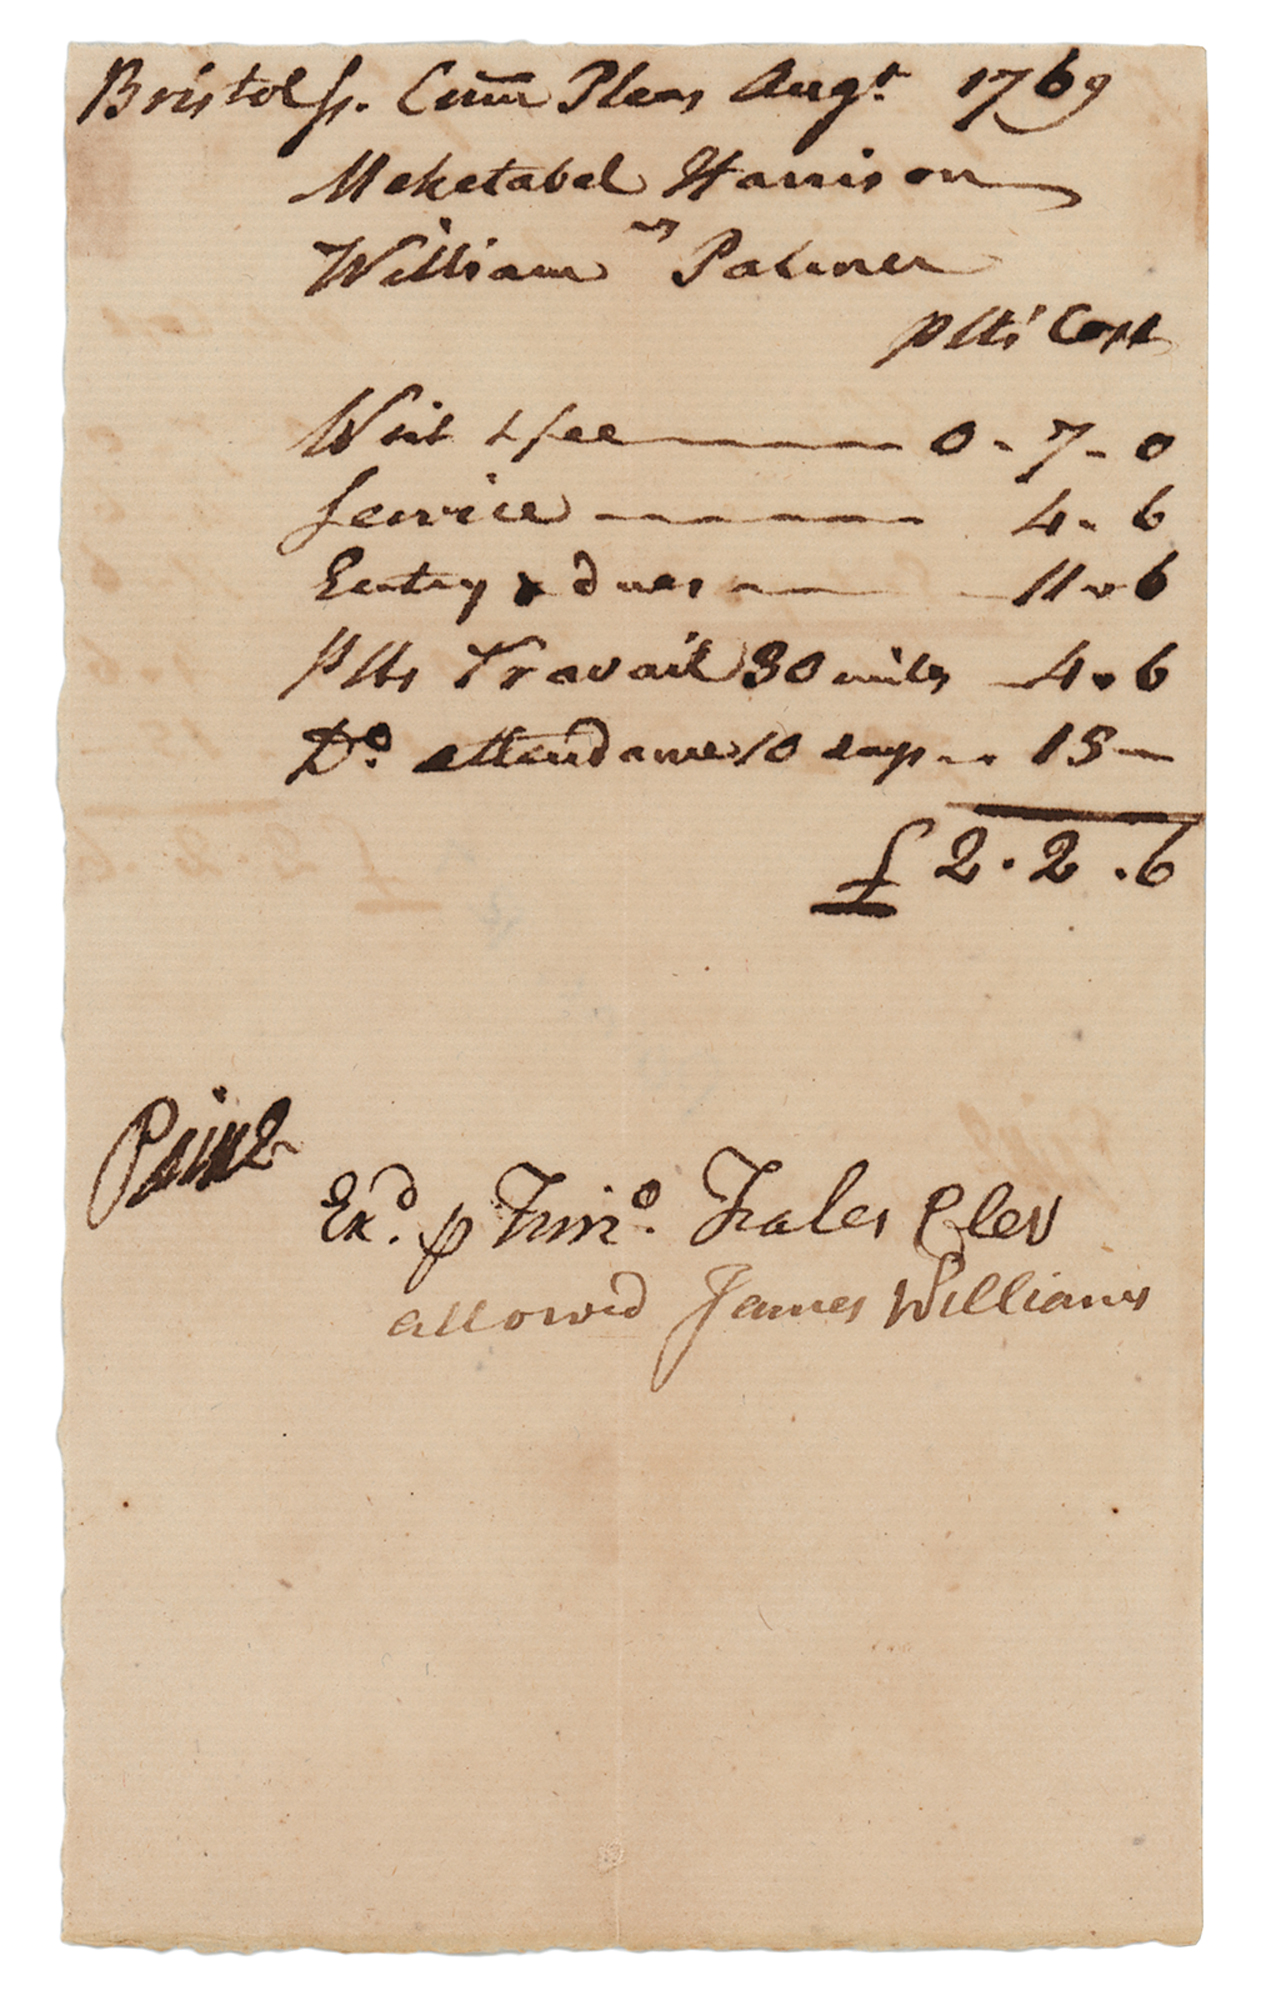 Bristol ss. Com̅ Pleas Augst 1769
Mehetabel Harrison
vs
William Palmer
Plts' Cost
Writ & fee 0-7-0
Service 4-6
Entry & dues 11-6
Plts Travail 30 miles 4-6
Do. attendance 10 days 15-
£2.2.6
Paine
Exd. p Timo. Fales Cler
allowed James Williams